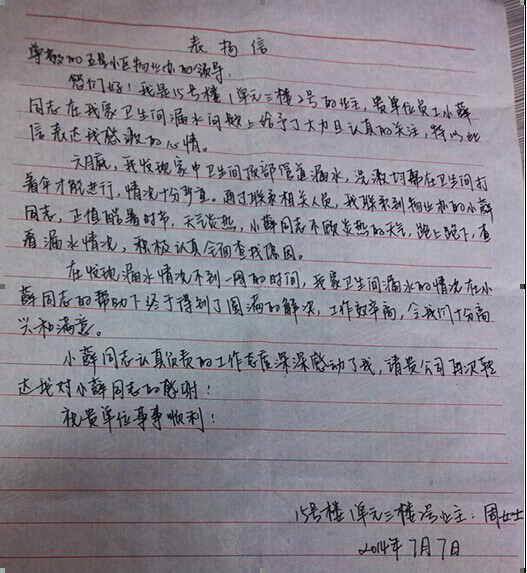 表扬信
尊敬的五号小区物业办的领导,
您们好!我是15号楼1单元三楼2号的业主,贵单位员工小薛
同志在我家卫生间漏水问题上给予了大力且认真的关注,特以此
信表达我感激的心情。
六月底,我发现家中卫生间顶部管道漏水,洗漱时都在卫生间打
着伞才能进行,情况十分窘迫。通过联系相关人员,我联系到物业办的小薛
同志,正值酷暑时节,天气炎热,小薛同志不顾炎热的天气,跑上跑下,查
看漏水情况,积极认真全面查找原因。
在发现漏水情况不到一周的时间,我家卫生间漏水的情况在小
薛同志的帮助下终于得到了圆满的解决,工作效率高,令我们十分高
兴和满意。
小薛同志认真负责的工作态度深深感动了我,请贵公司再次转
达我对小薛同志的感谢!
祝贵单位事事顺利!
15号楼1单元三楼2号业主:周女士
2014年7月7日